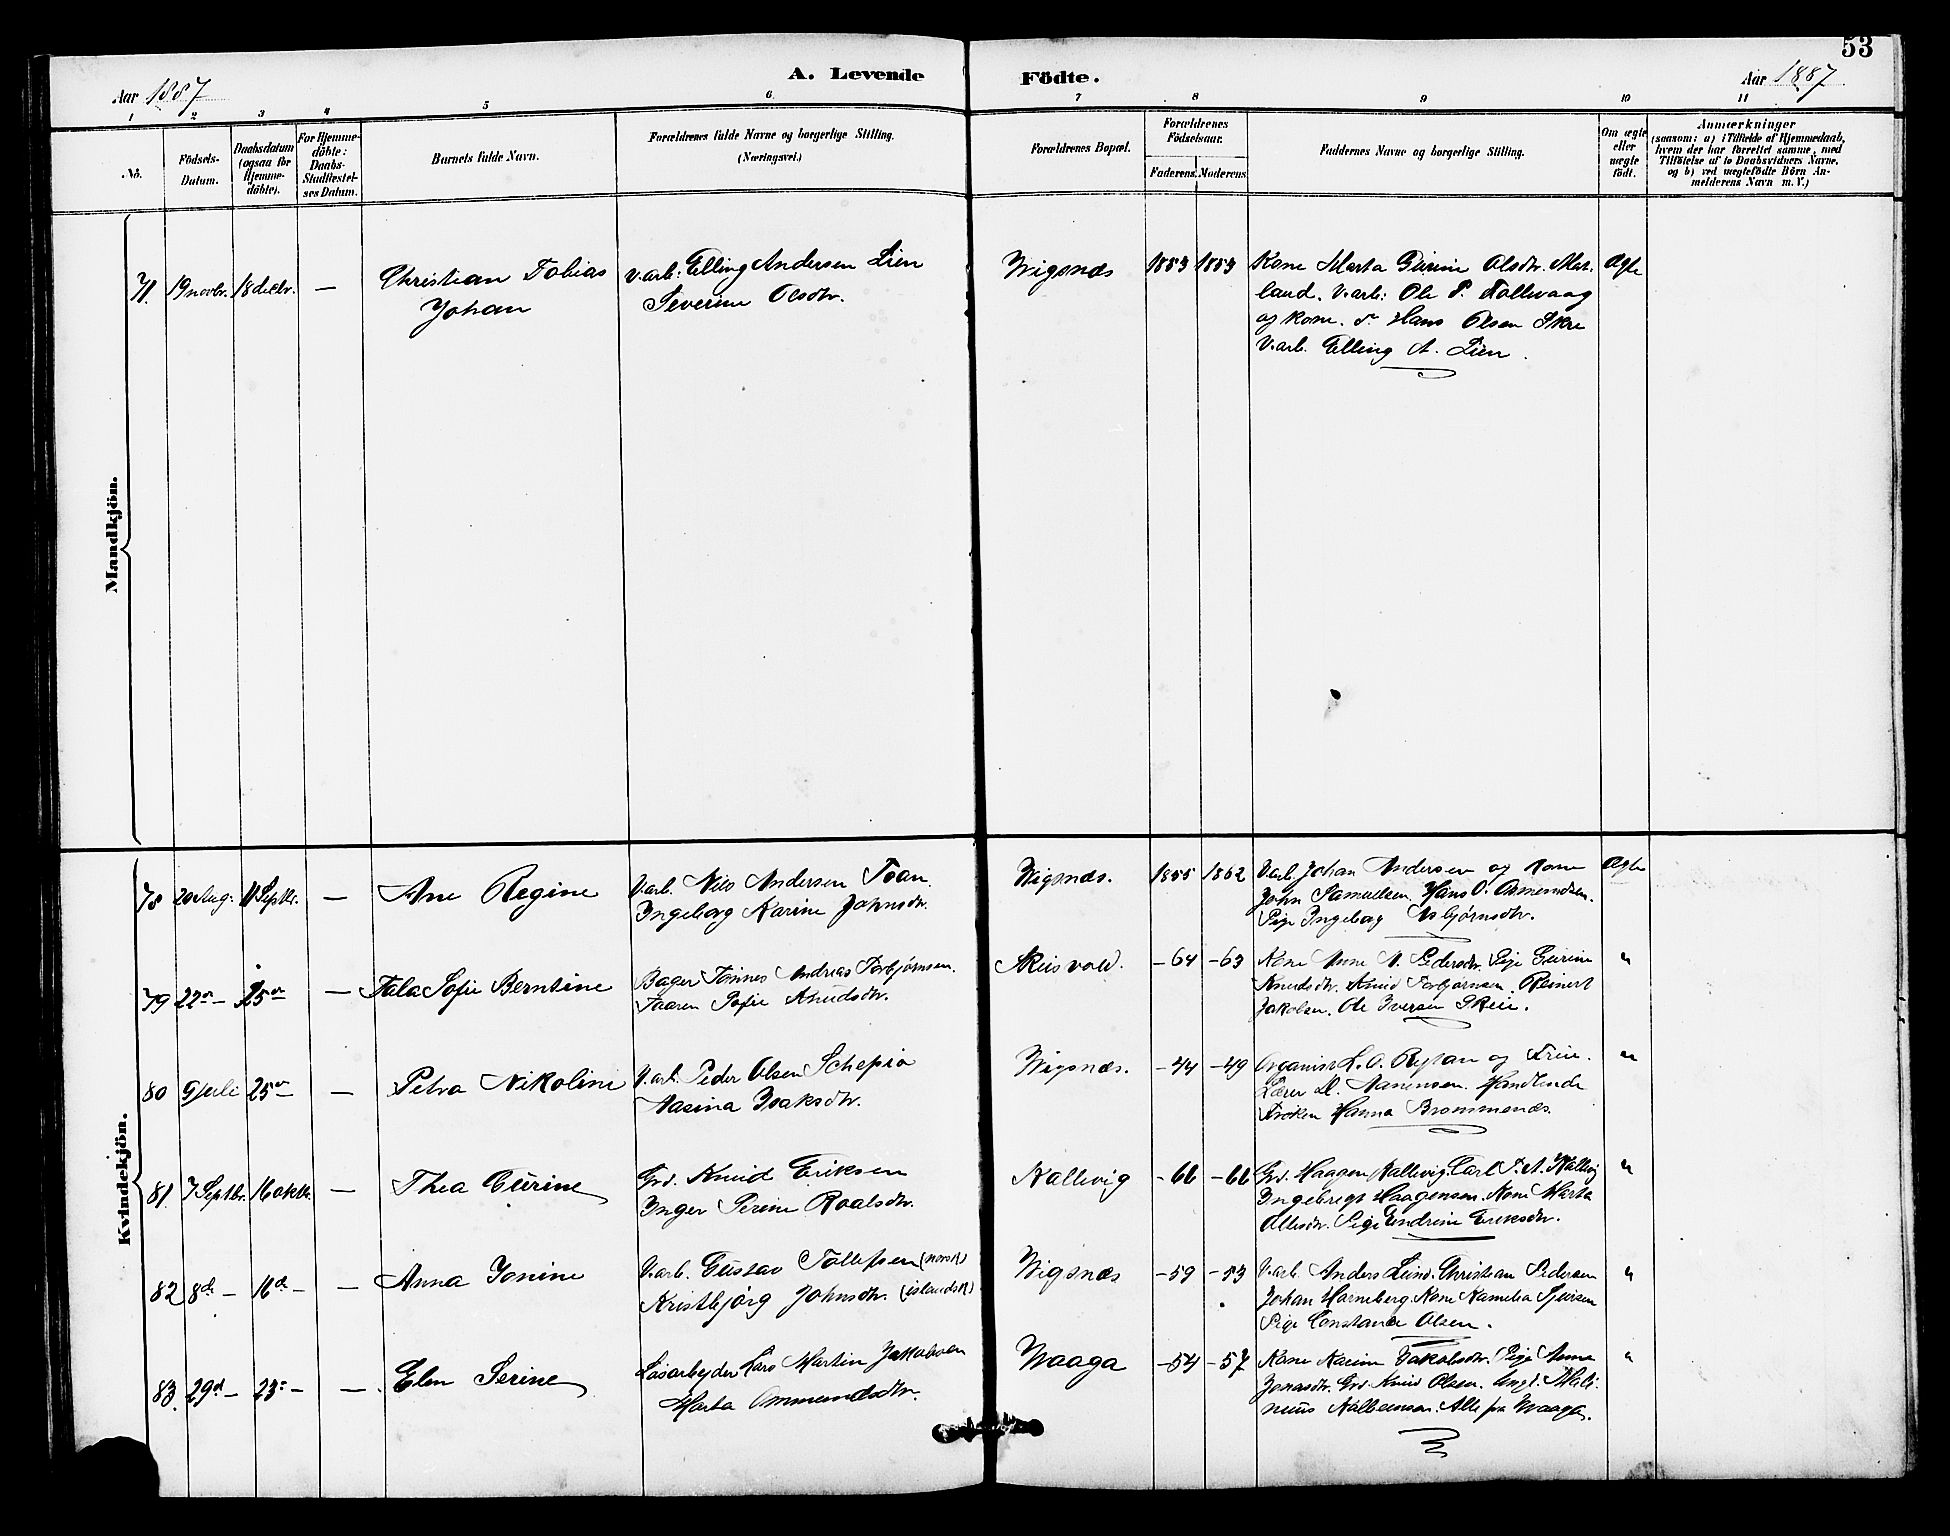 53
Aar 1887
A. Levende Födte.
Aar 1887
1 2 3 4 5 6 7 8 9 10 11
No.
Födsels-Datum.
Daabsdatum (ogsaa för Hjemme-döbte).
For Hjemme-döbte: Daabs-Stadfæstel-ses Datum.
Barnets fulde Navn.
Forældrenes fulde Navne og borgerlige Stilling.
(Næringsvei.)
Forældrenes Bopæl.
Forældrenes Födselsaar.
Faderens. Moderens.
Faddernes Navne og borgerlige Stilling.
Om ægte eller uægte födt.
Anmærkninger
(saasom: a) i Tilfælde af Hjemmedaab,
hvem der har forrettet samme, med
Tilföielse af to Daabsvidners Navne,
og b) ved uægtefödte Börn An-
melderens Navn m. V.)
Mandkjön.
71. 19 novbr. 18 decbr. — Christian Tobias Johan
V.arb: Elling Andersen Lien
Severine Olsdtr.
Wigsnæs 1853 1853
Kone Marta Gurine Olsdtr. Mæ-
land. V.arb: Ole P. Tollevaag
og kone. Hans Olsen Skre
V.arb. Elling A. Lien.
Ægte
Kvindekjön.
78 20 Aug. 11 Septbr. — Ane Regine
V.arb. Nils Andersen Toan.
Ingeborg Karine Johnsdtr.
Wigsnæs. 1855 1862
V.arb. Johan Andersen og kone
John Samuelsen. Hans O. Asmundsen.
Pige Ingeborg Asbjørnsdtr.
Ægte
79 22 — 25 — — Tala Sofie Berntine
Bager Tønnes Andreas Torbjørnsen.
Taaren Sofie Knudsdtr.
Skeisvold. — 64 — 63
Kone Anne Pedersdtr. Pige Gurine
Knudsdtr. Knud Torbjørnsen. Reinert
Jakobsen. Ole Iversen Skeie.
"
80 9 juli 25 — — Petra Nikoline
V.arb. Peder Olsen Schepsø
Aasina Isaksdtr.
Wigsnæs. — 44 — 49
Organist og Frue.
Lærer Aanensen. Handlende
Frøken Hanna Brommenæs.
"
81. 7 Septbr. 16 oktbr. — Thea Gurine
Grd. Knud Eriksen
Inger Serine Roalsdtr.
Kallevig — 66 — 66
Grd. Haagen Kallevig. Carl Kallevig
Ingebrigt Haagensen. Kone Marta
Ollesdtr. Pige Endrine Eriksdtr.
"
82 8de — 16de — — Anna Jonine
V.arb. Gustav Tollefsen (norsk)
Kristbjörg Johnsdtr. (islandsk)
Wigsnæs — 59 — 53
V.arb. Anders Leino. Christian Pedersen
Johan Harneberg. Kone Kamelia Sjursen
Pige Constance Olsen.
"
83. 29d — 23 — — Elen Serine
Løsarbejder Lars Martin Jakobsen
Marta Ommundsdtr.
Waaga — 54 — 57
Kone Karine Jakobsdtr. Pige Anna
Jonasdtr. Grd. Knud Olsen. Ungk. Mali-
nius Kolbeinsen. Alle fra Waaga.
"